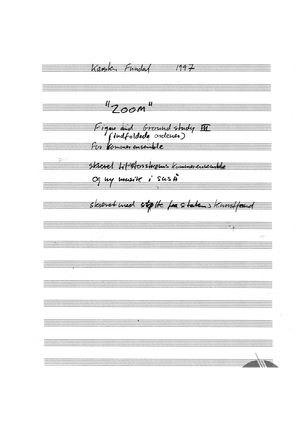 Karsten Fundal 1997
"ZOOM"
Figure and Ground study III
(Indfoldede ordener)
for kammerensemble
skrevet til Storstrøms kammerensemble
og ny musik i suså
skrevet med støtte fra statens kunstfond